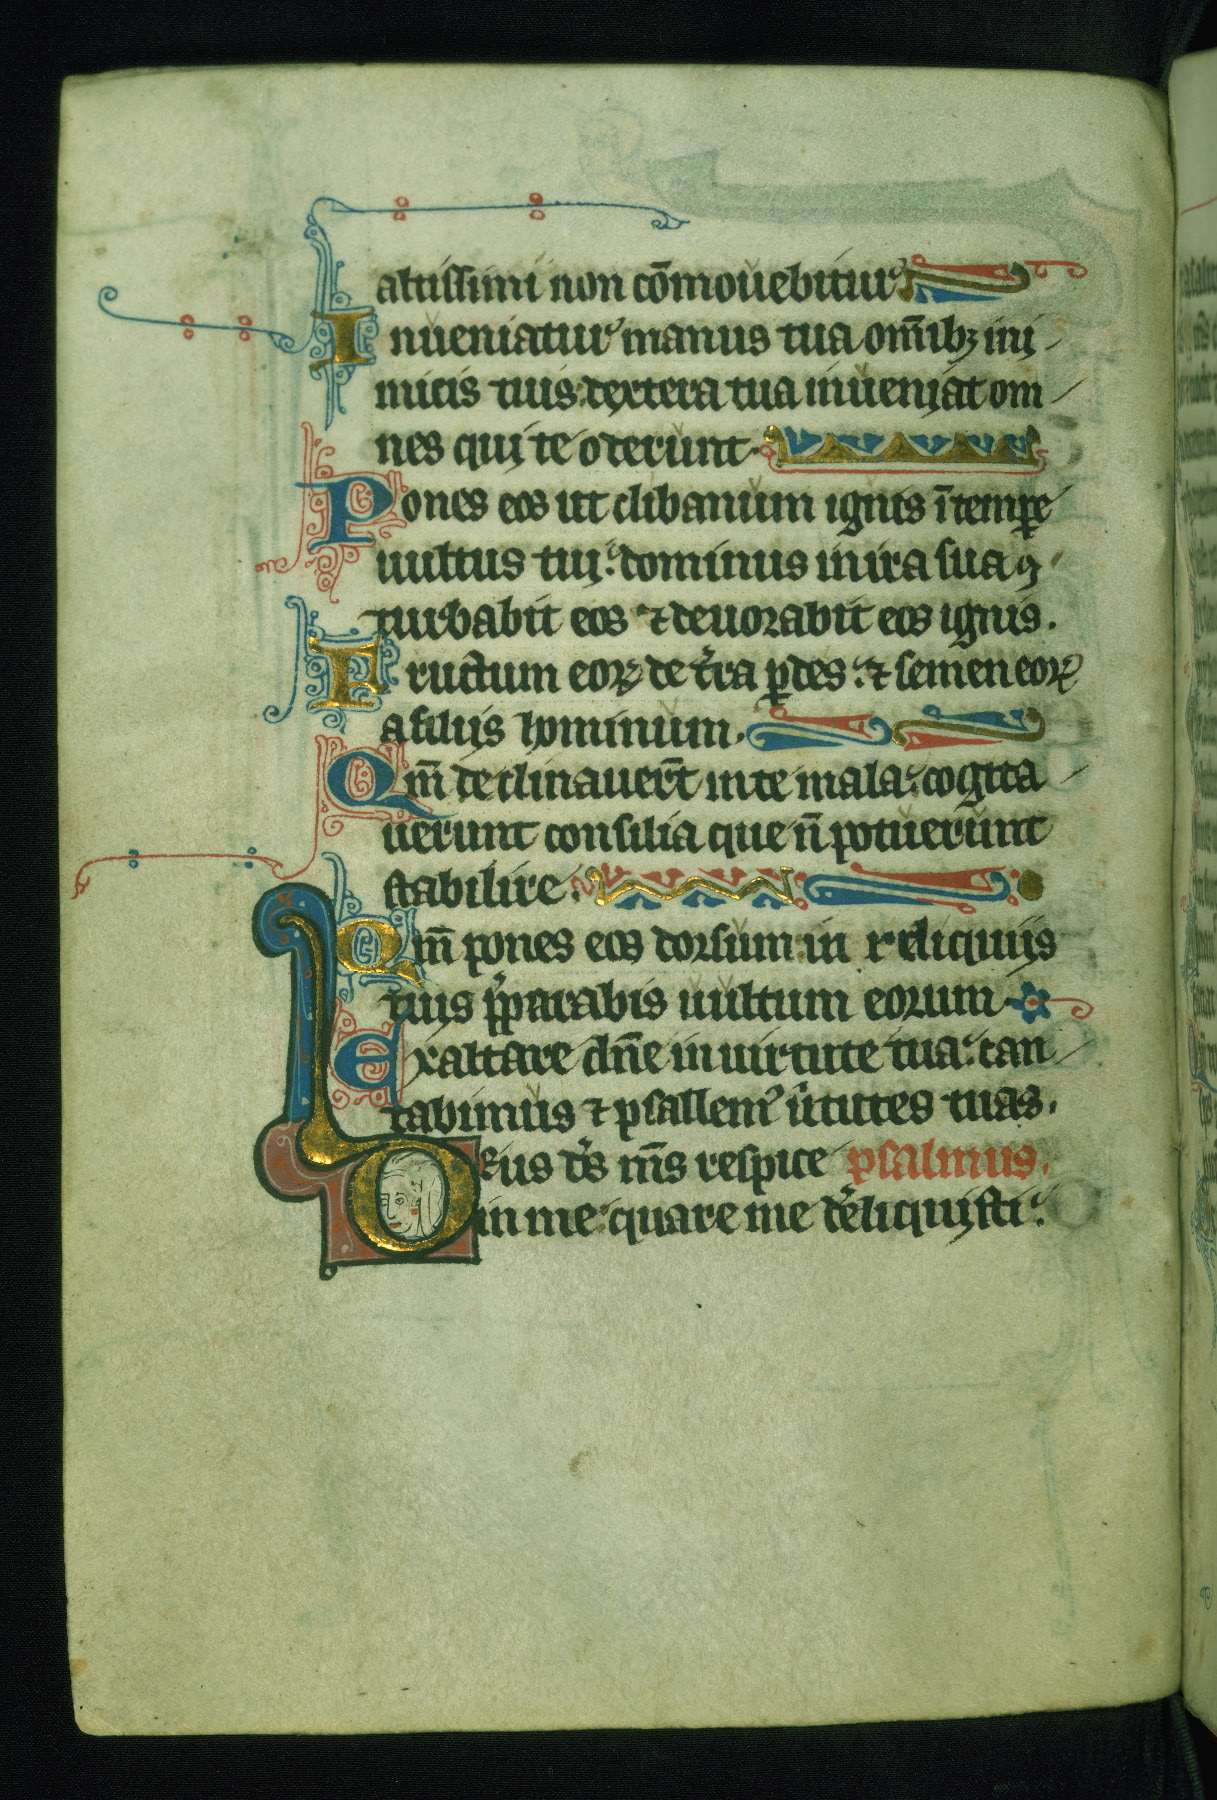 altissimi non cōmouebitur
Inueniatur manus tua om̄ibꝫ ini
micis tuis: dextera tua inueniat om
nes qui te oderunt.
Pones eos ut clibanum ignis ī temꝑe
uultus tui: dominus in ira sua ꝯ
turbabit eos ⁊ deuorabit eos ignis.
Fructum eoꝝ de t̉ra ꝑdes: ⁊ semen eoꝝ
a filiis hominum.
Qm̄ declinauer̄t in te mala: cogita
uerunt consilia que n̄ potuerunt
stabilire.
Qm̄ pones eos dorsum: in reliquiis
tuis p̄parabis uultum eorum
Exaltare dn̄e in uirtute tua: can
tabimus ⁊ psallemꝰ u̍tutes tuas.
Deus d̄s m̄s respice psalmus.
in me: quare me d̉eliquisti: